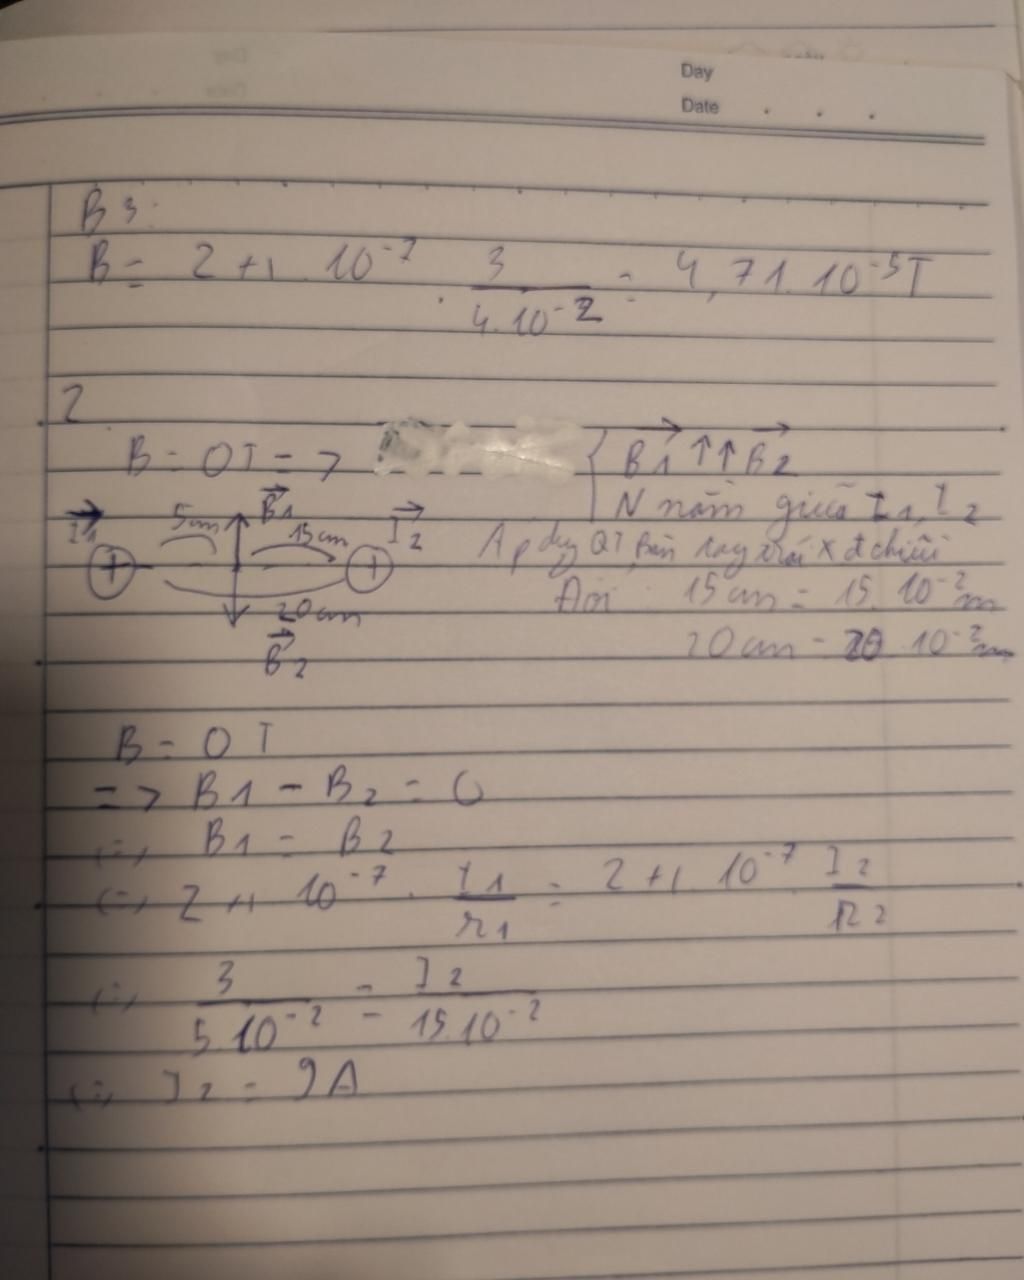 Day
Date . . .
B3.
B = 2π. 10⁻⁷ . 3/(4.10⁻²) = 4,71.10⁻⁵T
2
B = 0T => { B⃗1 ↑↑ B⃗2
N nằm giữa I1, I2
I⃗1 5cm B⃗1 15cm I⃗2
Áp dụng QT bàn tay trái x đ chiều
+ +
Đổi 15cm = 15.10⁻²m
20cm
20cm = 20.10⁻²m
B⃗2
B = 0T
=> B1 - B2 = 0
(=) B1 = B2
(=) 2π 10⁻⁷ . I1/r1 = 2π. 10⁻⁷ I2/r2
(=) 3/(5.10⁻²) = I2/(15.10⁻²)
(=) I2 = 9A